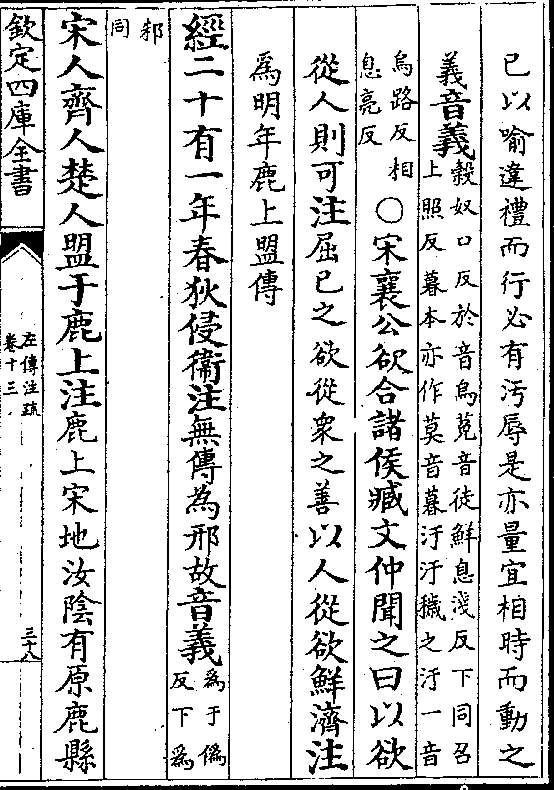 己以喻違禮而行必有汚辱是亦量宜相時而動之
義音義
穀奴口反於音烏菟音徒鮮息淺反下同召
上照反暮本亦作莫音暮汙汙穢之汙一音
烏路反相
息亮反
○宋襄公欲合諸侯臧文仲聞之曰以欲
從人則可注屈已之欲從衆之善以人從欲鮮濟注
爲明年鹿上盟傳
經二十有一年春狄侵衛注無傳為邢故音義
爲于僞
反下爲
邾
同
宋人齊人楚人盟于鹿上注鹿上宋地汝陰有原鹿縣
欽定四庫全書
左傳注疏
卷十三
三十八